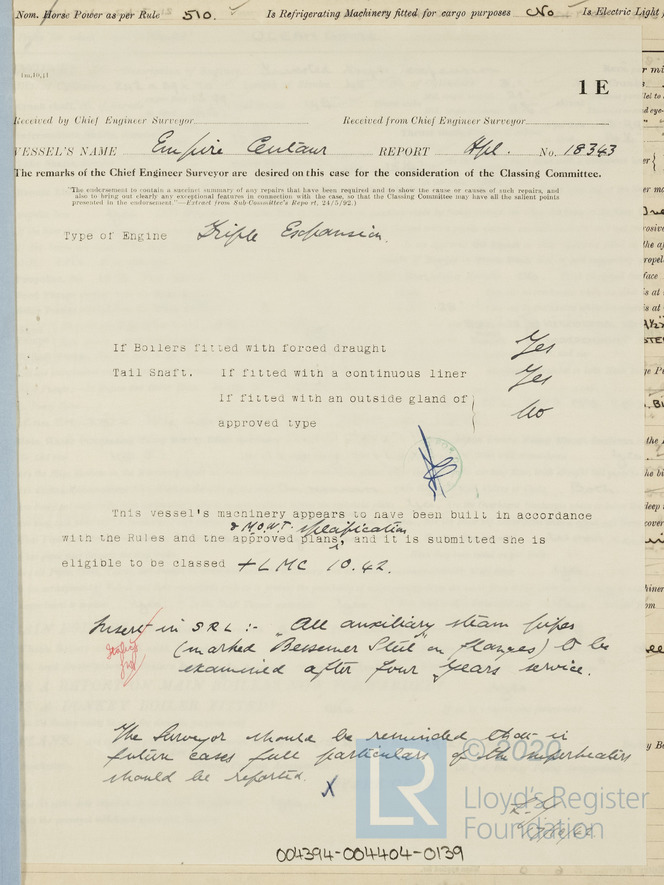 Nom. Horse Power as per Rule 510. Is Refrigerating Machinery fitted for cargo purposes No Is Electric Light
1m,10,41
1 E
Received by Chief Engineer Surveyor Received from Chief Engineer Surveyor
VESSEL'S NAME Empire Centaur REPORT Hpl. No. 18343
The remarks of the Chief Engineer Surveyor are desired on this case for the consideration of the Classing Committee.
"The endorsement to contain a succinct summary of any repairs that have been required and to show the cause or causes of such repairs, and
also to bring out clearly any exceptional features in connection with the case, so that the Classing Committee may have all the salient points
presented in the endorsement."—Extract from Sub-Committee's Report, 24/5/92.)
Type of Engine Triple Expansion.
If Boilers fitted with forced draught Yes
Tail Shaft. If fitted with a continuous liner Yes
If fitted with an outside gland of
approved type No
This vessel's machinery appears to have been built in accordance
& M.O.W.T. specification
with the Rules and the approved plans, and it is submitted she is
eligible to be classed +LMC 10.42.
Insert in SRL :- "All auxiliary steam pipes
(marked "Bessemer Steel" on flanges) to be
examined after four years service.
The Surveyor should be reminded that in
future cases full particulars of the superheaters
should be reported.
X
LR
© 2020
Lloyd's Register
Foundation
004394-004404-0139